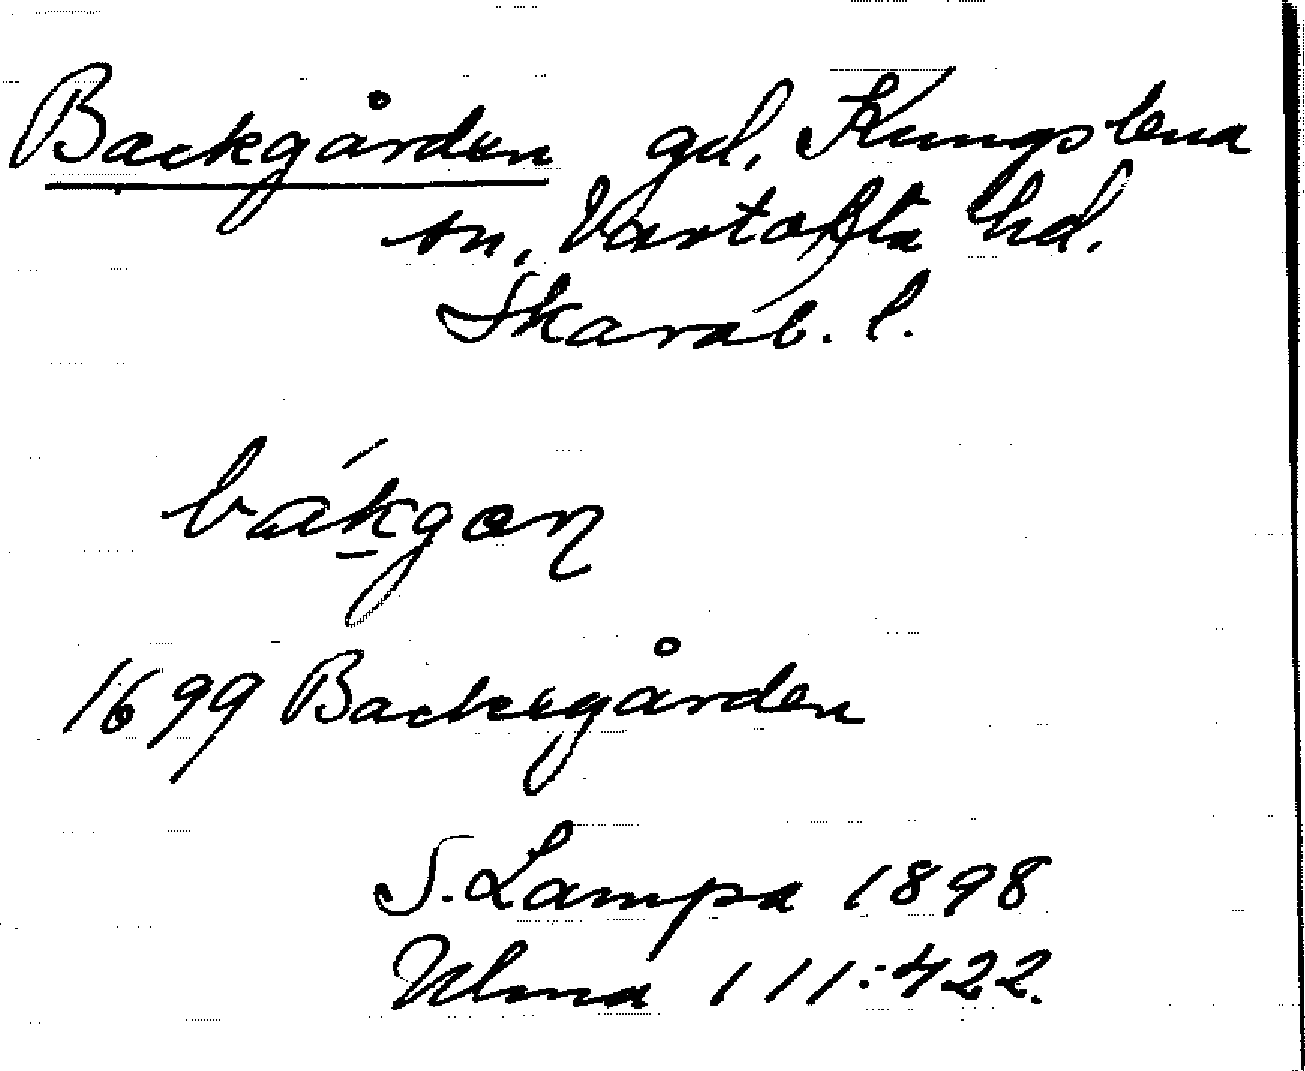 Backgården gd. Kungslena
sn. Vartofta hd.
Skarab. l.
bákgɶn
1699 Backegården
S. Lampa 1898
Ulma 111:422.